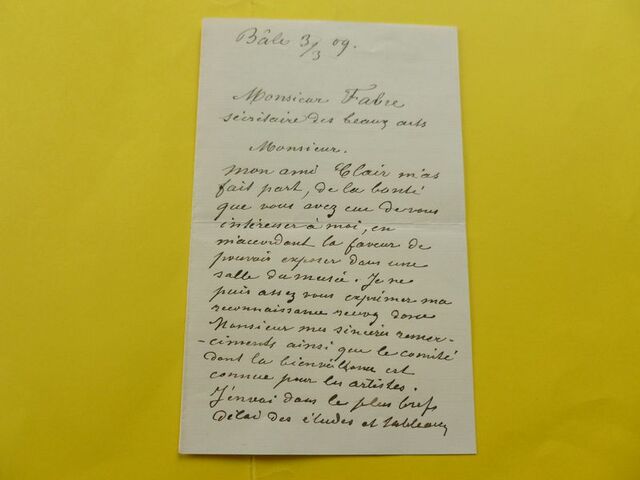 Bâle 3/3 09.
Monsieur Fabre
sécritaire des beaux arts
Monsieur.
mon ami Clair m'as
fait part, de la bonté
que vous avez eue de vous
intéresser à moi, en
m'accordant la faveur de
pouvoir exposer dans une
salle du musée. Je ne
puis assez vous exprimer ma
reconnaissance recevez donc
Monsieur mes sincères remer-
-ciments ainsi que le comité
dont la bienveillance est
connue pour les artistes.
J'envoi dans le plus brefs
délai des études et tableaux